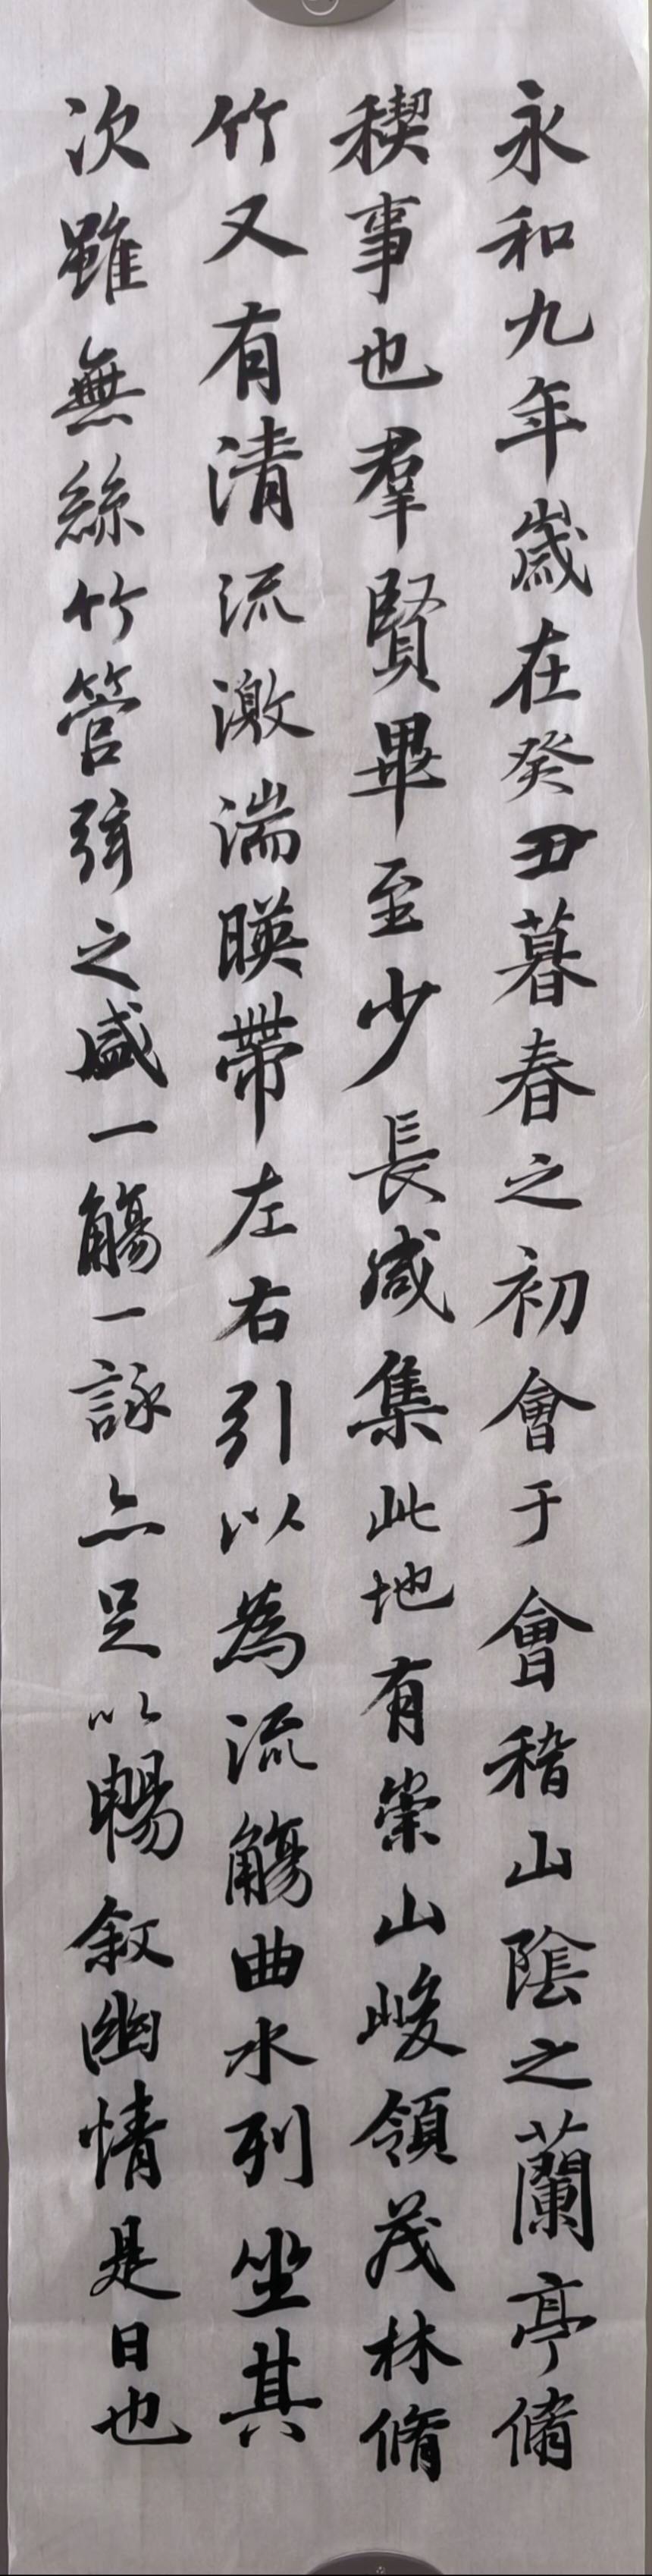 永和九年歲在癸丑暮春之初會于會稽山陰之蘭亭脩
稧事也羣賢畢至少長咸集此地有崇山峻領茂林脩
竹又有清流激湍暎帶左右引以為流觴曲水列坐其
次雖無絲竹管弦之盛一觴一詠亦足以暢敘幽情是日也